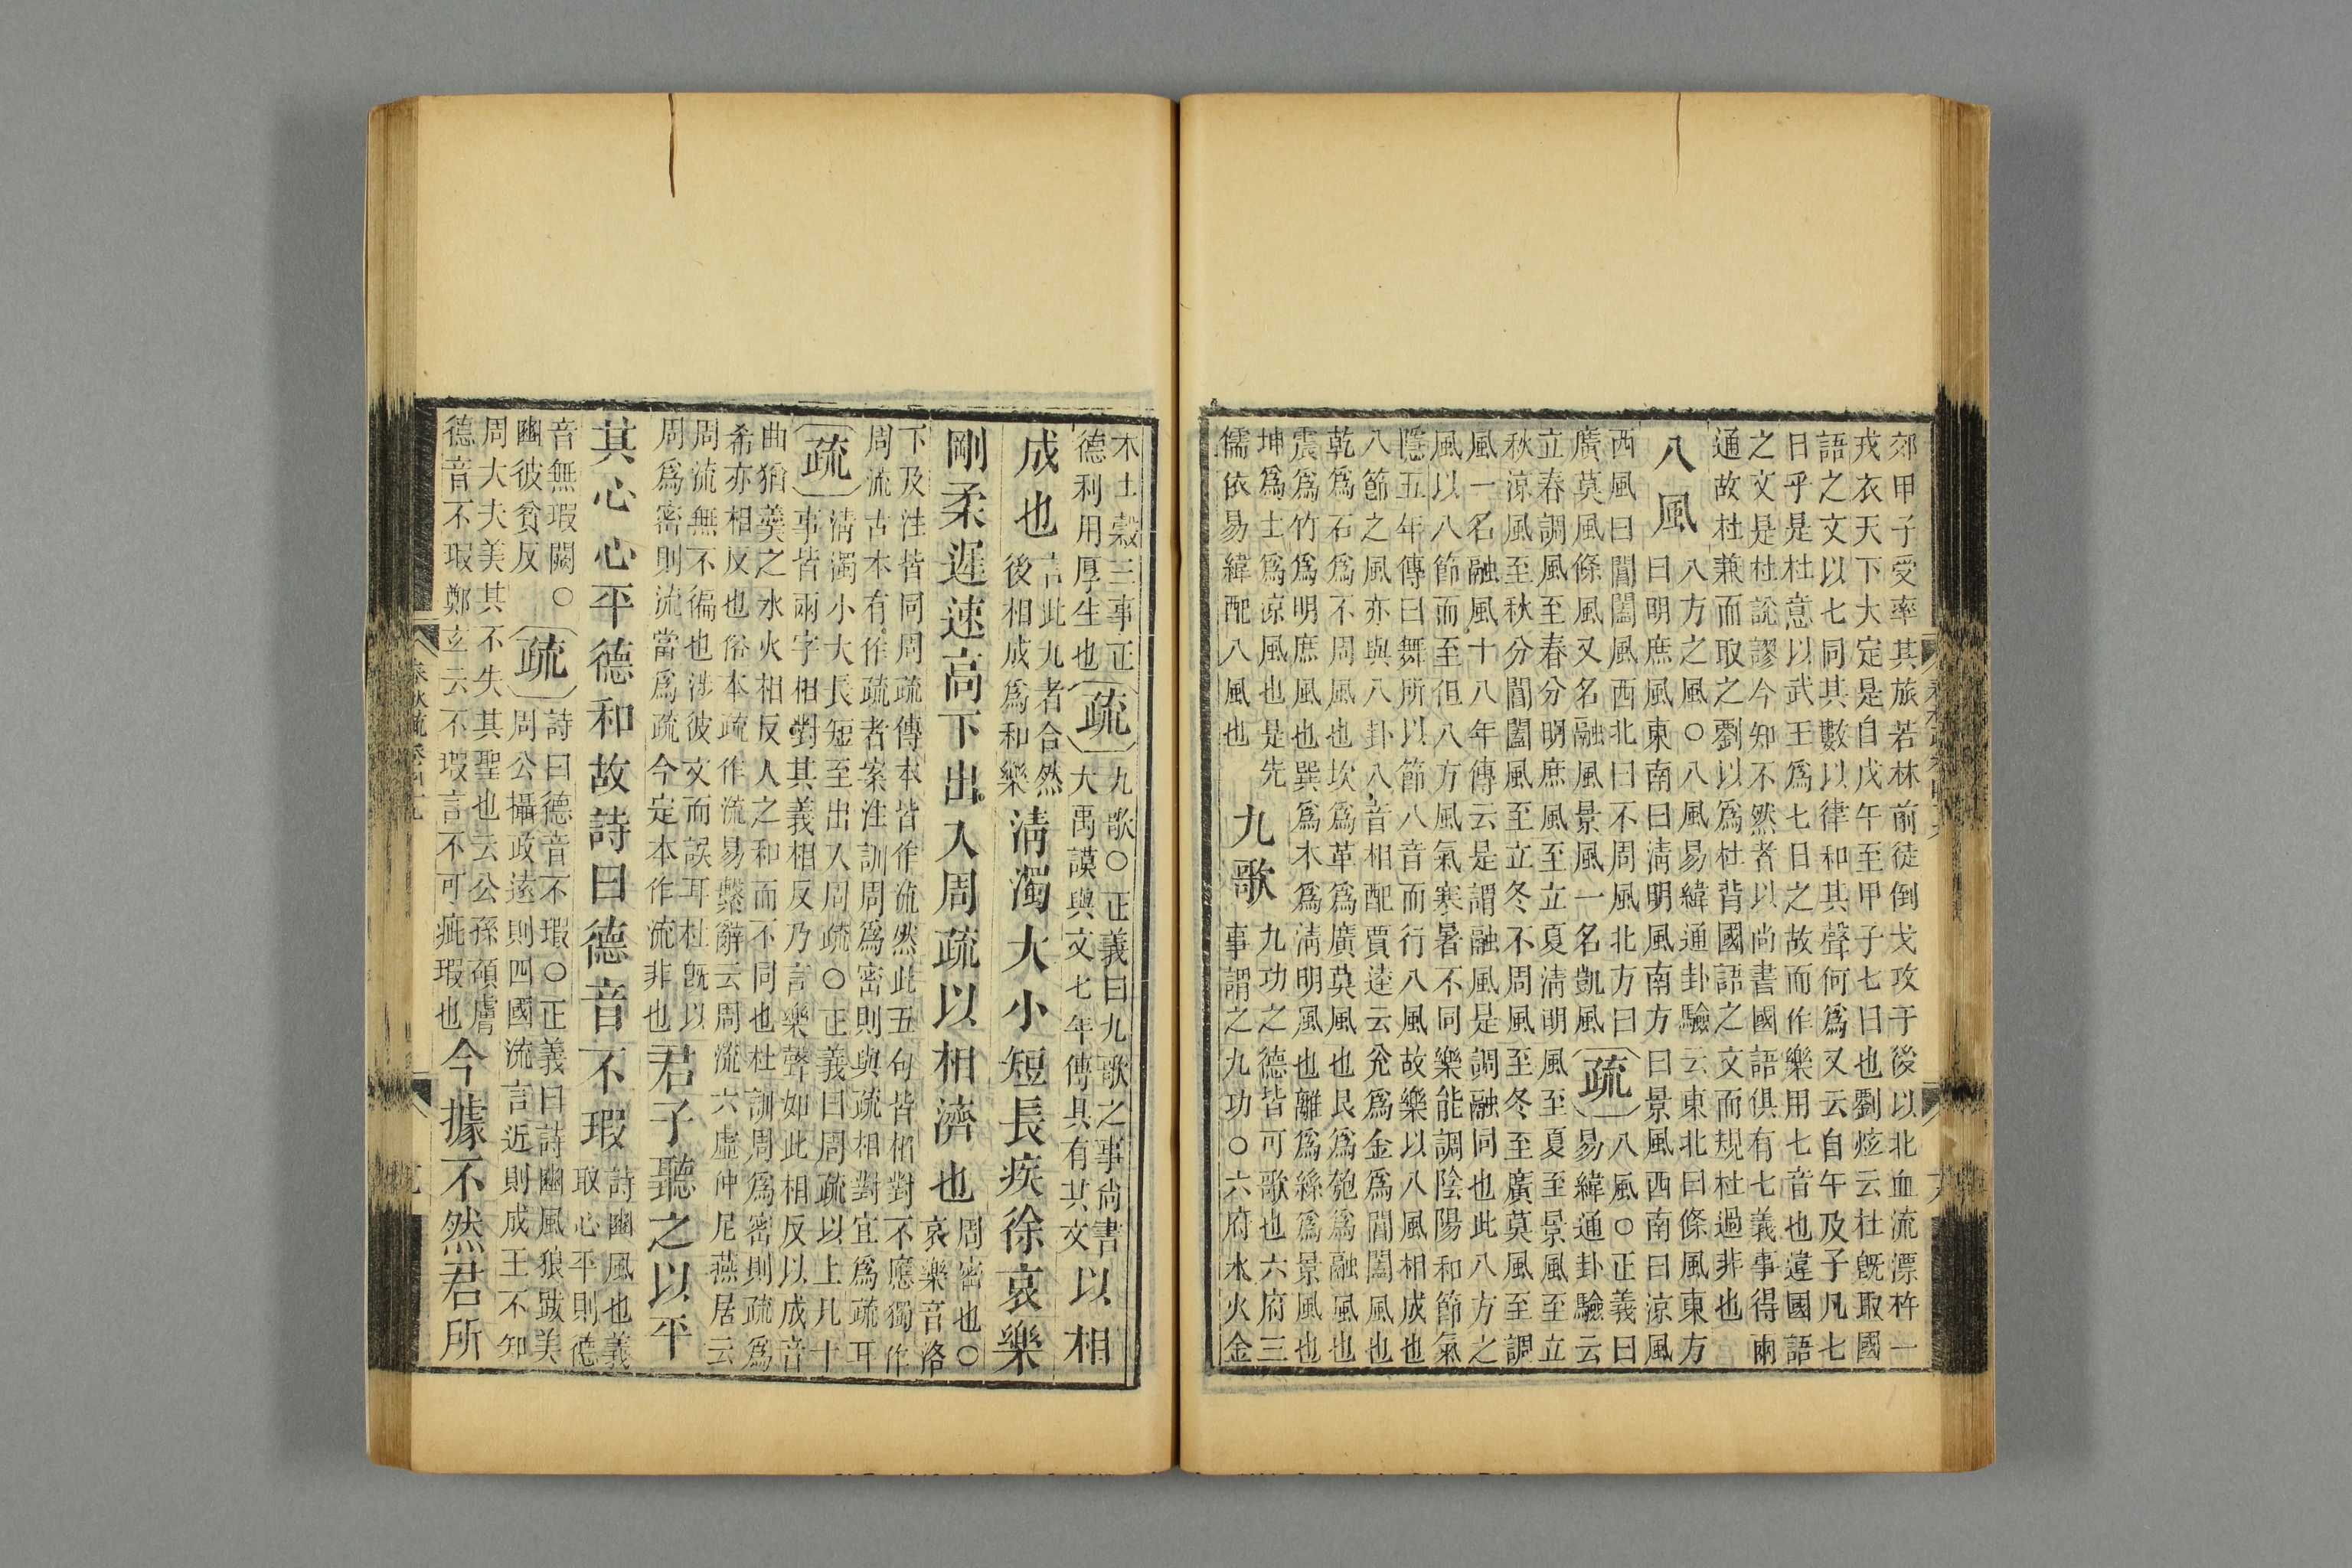 郊甲子受率其旅若林前徒倒戈攻于後以北血流漂杵一
戎衣天下大定是自戊午至甲子七日也劉炫云杜旣取國
語之文以七同其數以律和其聲何爲又云自午及子凡七
日乎是杜意以武王爲七日之故而作樂用七音也違國語
之文是杜說謬今知不然者以尚書國語俱有七義事得兩
通故杜兼而取之劉以爲杜背國語之文而規杜過非也
八風
八方之風○八風易緯通卦驗云東北曰條風東方
曰明庶風東南曰清明風南方曰景風西南曰涼風
西風曰閶闔風西北曰不周風北方曰
廣莫風條風又名融風景風一名凱風
疏
八風○正義曰
易緯通卦驗云
立春調風至春分明庶風至立夏清明風至夏至景風至立
秋涼風至秋分閶闔風至立冬不周風至冬至廣莫風至調
風一名融風十八年傳云是謂融風是調融同也此八方之
風以八節而至但八方風氣寒暑不同樂能調陰陽和節氣
隱五年傳曰舞所以節八音而行八風故樂以八風相成也
八節之風亦與八卦八音相配賈逵云兊爲金爲閶闔風也
乾爲石爲不周風也坎爲革爲廣莫風也艮爲匏爲融風也
震爲竹爲明庶風也巽爲木爲清明風也離爲絲爲景風也
坤爲土爲涼風也是先
儒依易緯配八風也
九歌
九功之德皆可歌也六府三
事謂之九功○六府水火金
木土穀三事正
德利用厚生也
疏
九歌○正義曰九歌之事尚書
大禹謨與文七年傳具有其文
以相
成也
言此九者合然
後相成爲和樂
清濁大小短長疾徐哀樂
剛柔遲速高下出入周疏以相濟也
周密也○
哀樂音洛
下及注皆同周疏傳本皆作流然此五句皆相對不應獨作
周流古本有作疏者案注訓周爲密則與疏相對宜爲疏耳
疏
清濁小大長短至出入周疏○正義曰周疏以上凡十
事皆兩字相對其義相反乃言樂聲如此相反以成音
曲猶羹之水火相反人之和而不同也杜訓周爲密則疏爲
希亦相反也俗本疏作流易繫辭云周流六虛仲尼燕居云
周流無不徧也涉彼文而誤耳杜旣以
周爲密則流當爲疏今定本作流非也
君子聽之以平
其心心平德和故詩曰德音不瑕
詩豳風也義
取心平則德
音無瑕闕○
豳彼貧反
疏
詩曰德音不瑕○正義曰詩豳風狼跋美
周公攝政遠則四國流言近則成王不知
周大夫美其不失其聖也云公孫碩膚
德音不瑕鄭玄云不瑕言不可疵瑕也
今據不然君所